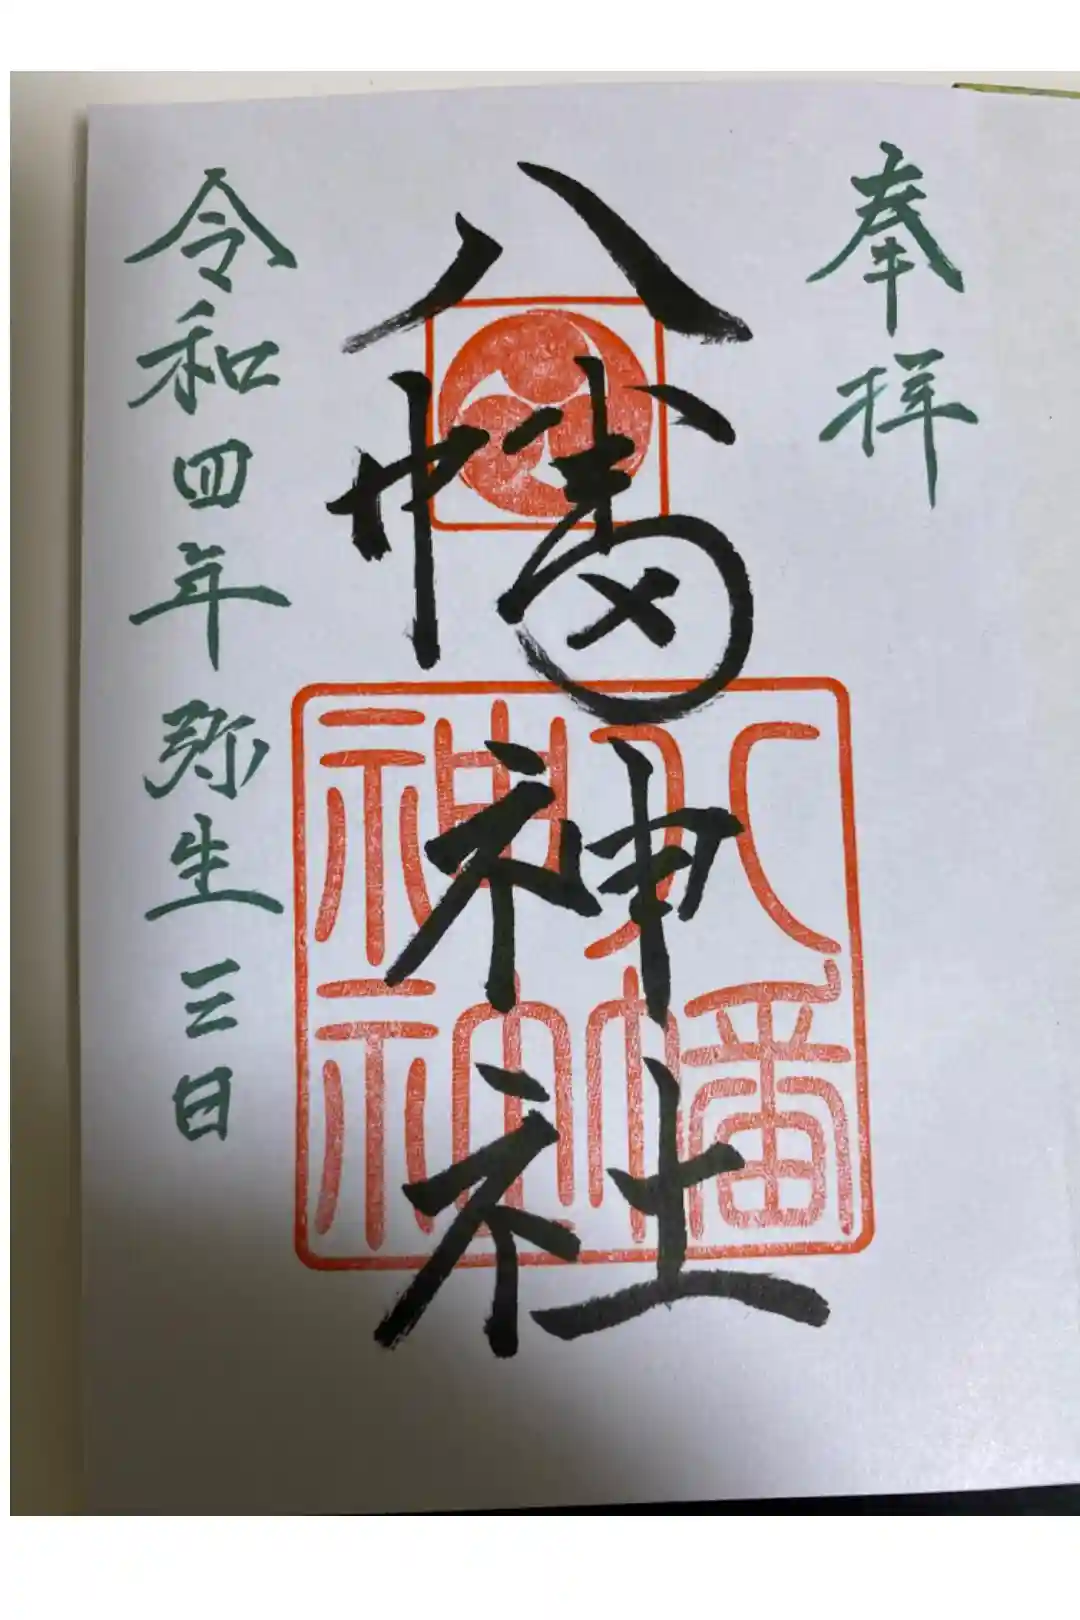 奉拝
八幡神社
八幡
神社
令和四年弥生三日